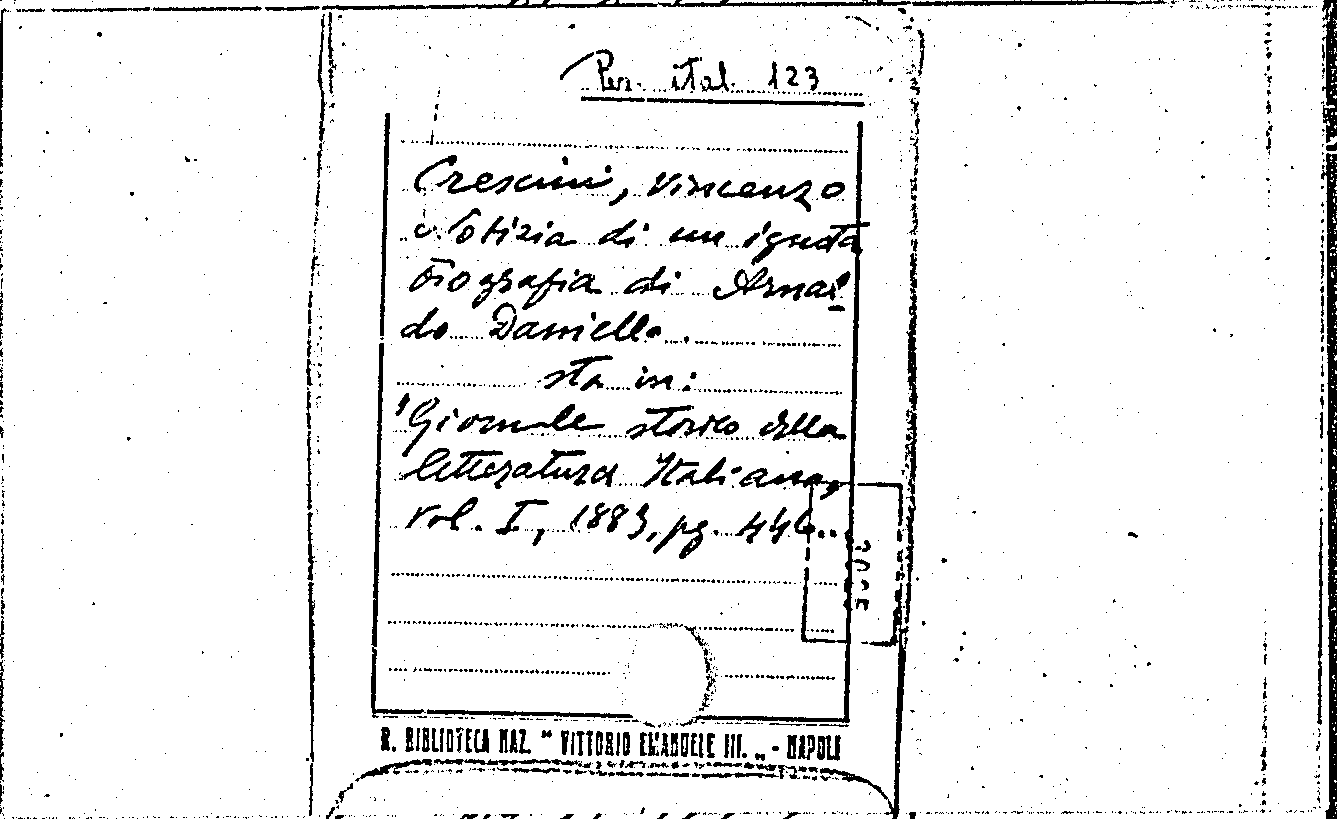 Per. ital. 123
Crescini, Vincenzo
Notizia di un ignota
biografia di Arnal
do Daniello.
sta in:
"Giornale storico della
letteratura Italiana,
vol. I, 1883, pg. 446..
R. BIBLIOTECA NAZ. " VITTORIO EMANUELE III. „ - NAPOLI